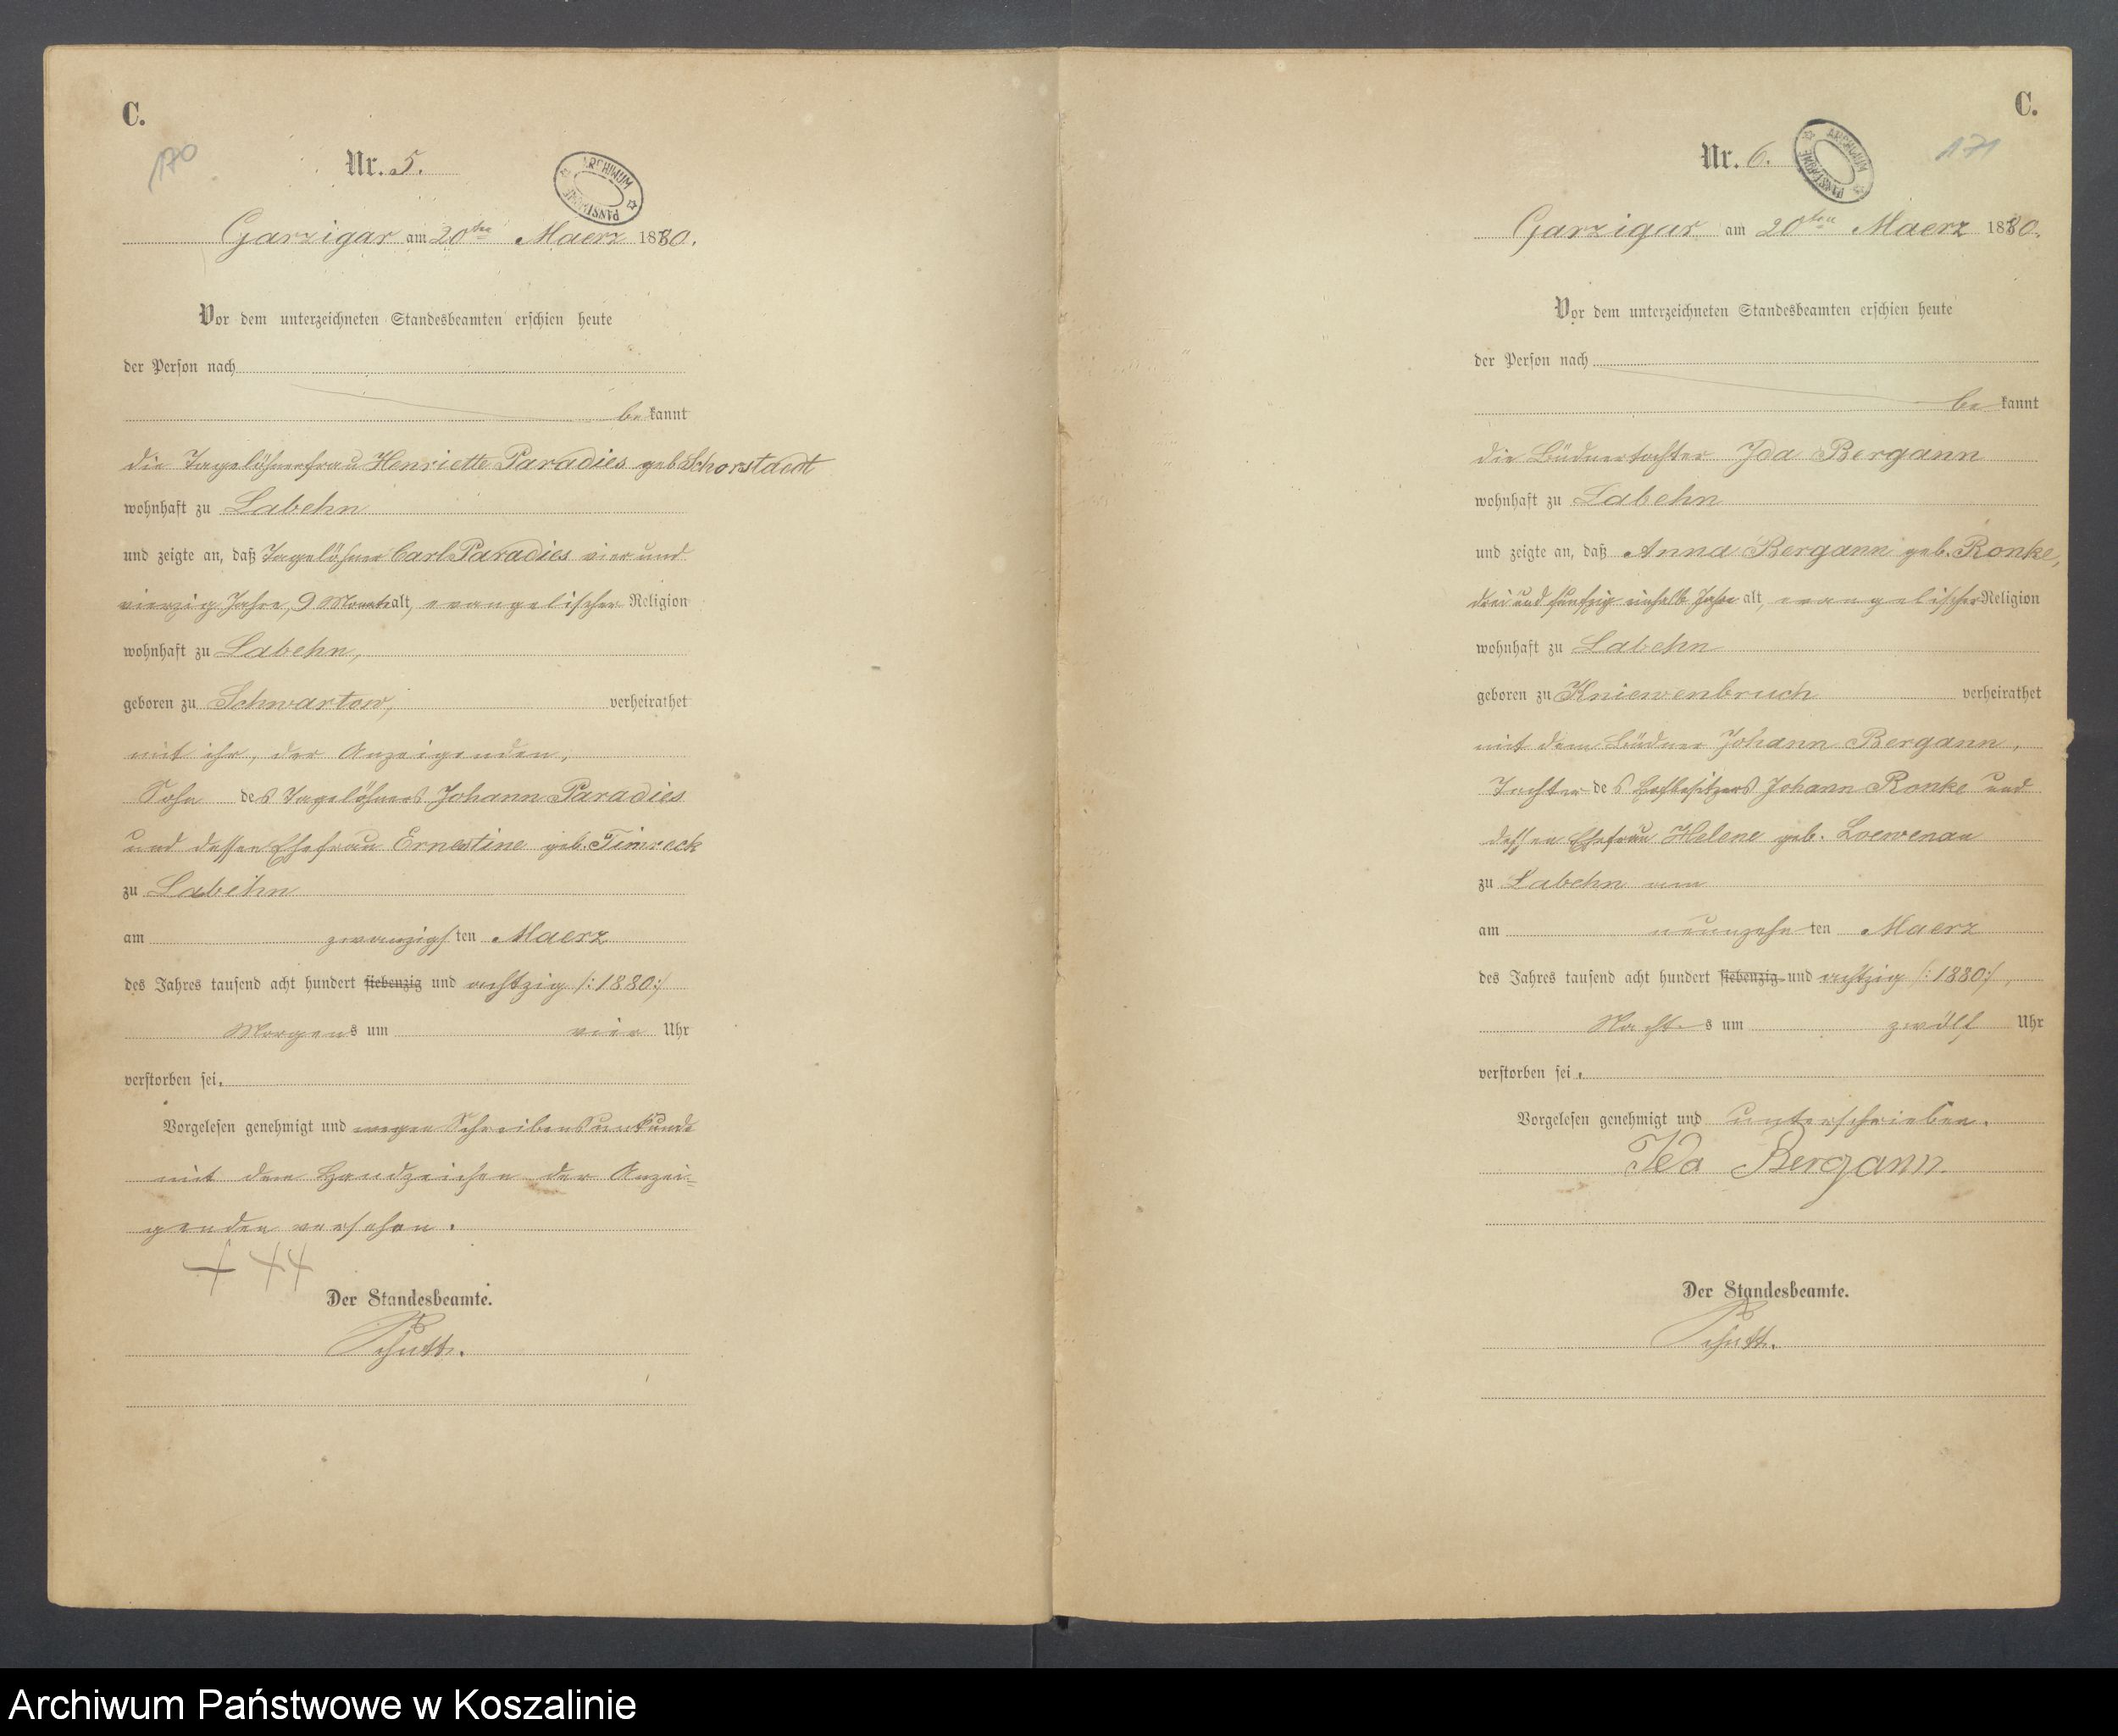 C.
170
Nr. 5.
ARCHIWUM PAŃSTWOWE
Garzigar am 20ten Maerz 1880.
Vor dem unterzeichneten Standesbeamten erschien heute
der Person nach
bekannt
die Tagelöhnerfrau Henriette Paradies geb. Schorstaedt
wohnhaft zu Labehn
und zeigte an, daß Tagelöhner Carl Paradies vier und
vierzig Jahre, 9 Monate alt, evangelischer Religion
wohnhaft zu Labehn,
geboren zu Schwartow, verheirathet
mit ihr, der Anzeigenden,
Sohn des Tagelöhners Johann Paradies
und dessen Ehefrau Ernestine geb. Timreck
zu Labehn
am zwanzigsten Maerz
des Jahres tausend acht hundert siebenzig und achtzig /:1880:/
Morgens um vier Uhr
verstorben sei.
Vorgelesen genehmigt und wegen Schreibensunkunde
mit dem Handzeichen der Anzei-
genden versehen.
+++
Der Standesbeamte.
C.
171
Nr. 6.
ARCHIWUM PAŃSTWOWE
Garzigar am 20ten Maerz 1880.
Vor dem unterzeichneten Standesbeamten erschien heute
der Person nach
bekannt
die Büdnertochter Ida Bergann
wohnhaft zu Labehn
und zeigte an, daß Anna Bergann geb. Ronke,
drei und fünfzig einhalb Jahre alt, evangelischer Religion
wohnhaft zu Labehn
geboren zu Kniewenbruch verheirathet
mit dem Büdner Johann Bergann,
Tochter des Hofbesitzers Johann Ronke und
dessen Ehefrau Helene geb. Loewenau
zu Labehn
am neunzehnten Maerz
des Jahres tausend acht hundert siebenzig und achtzig /:1880:/,
Nachts um zwölf Uhr
verstorben sei.
Vorgelesen genehmigt und unterschrieben.
Ida Bergann.
Der Standesbeamte.
Archiwum Państwowe w Koszalinie